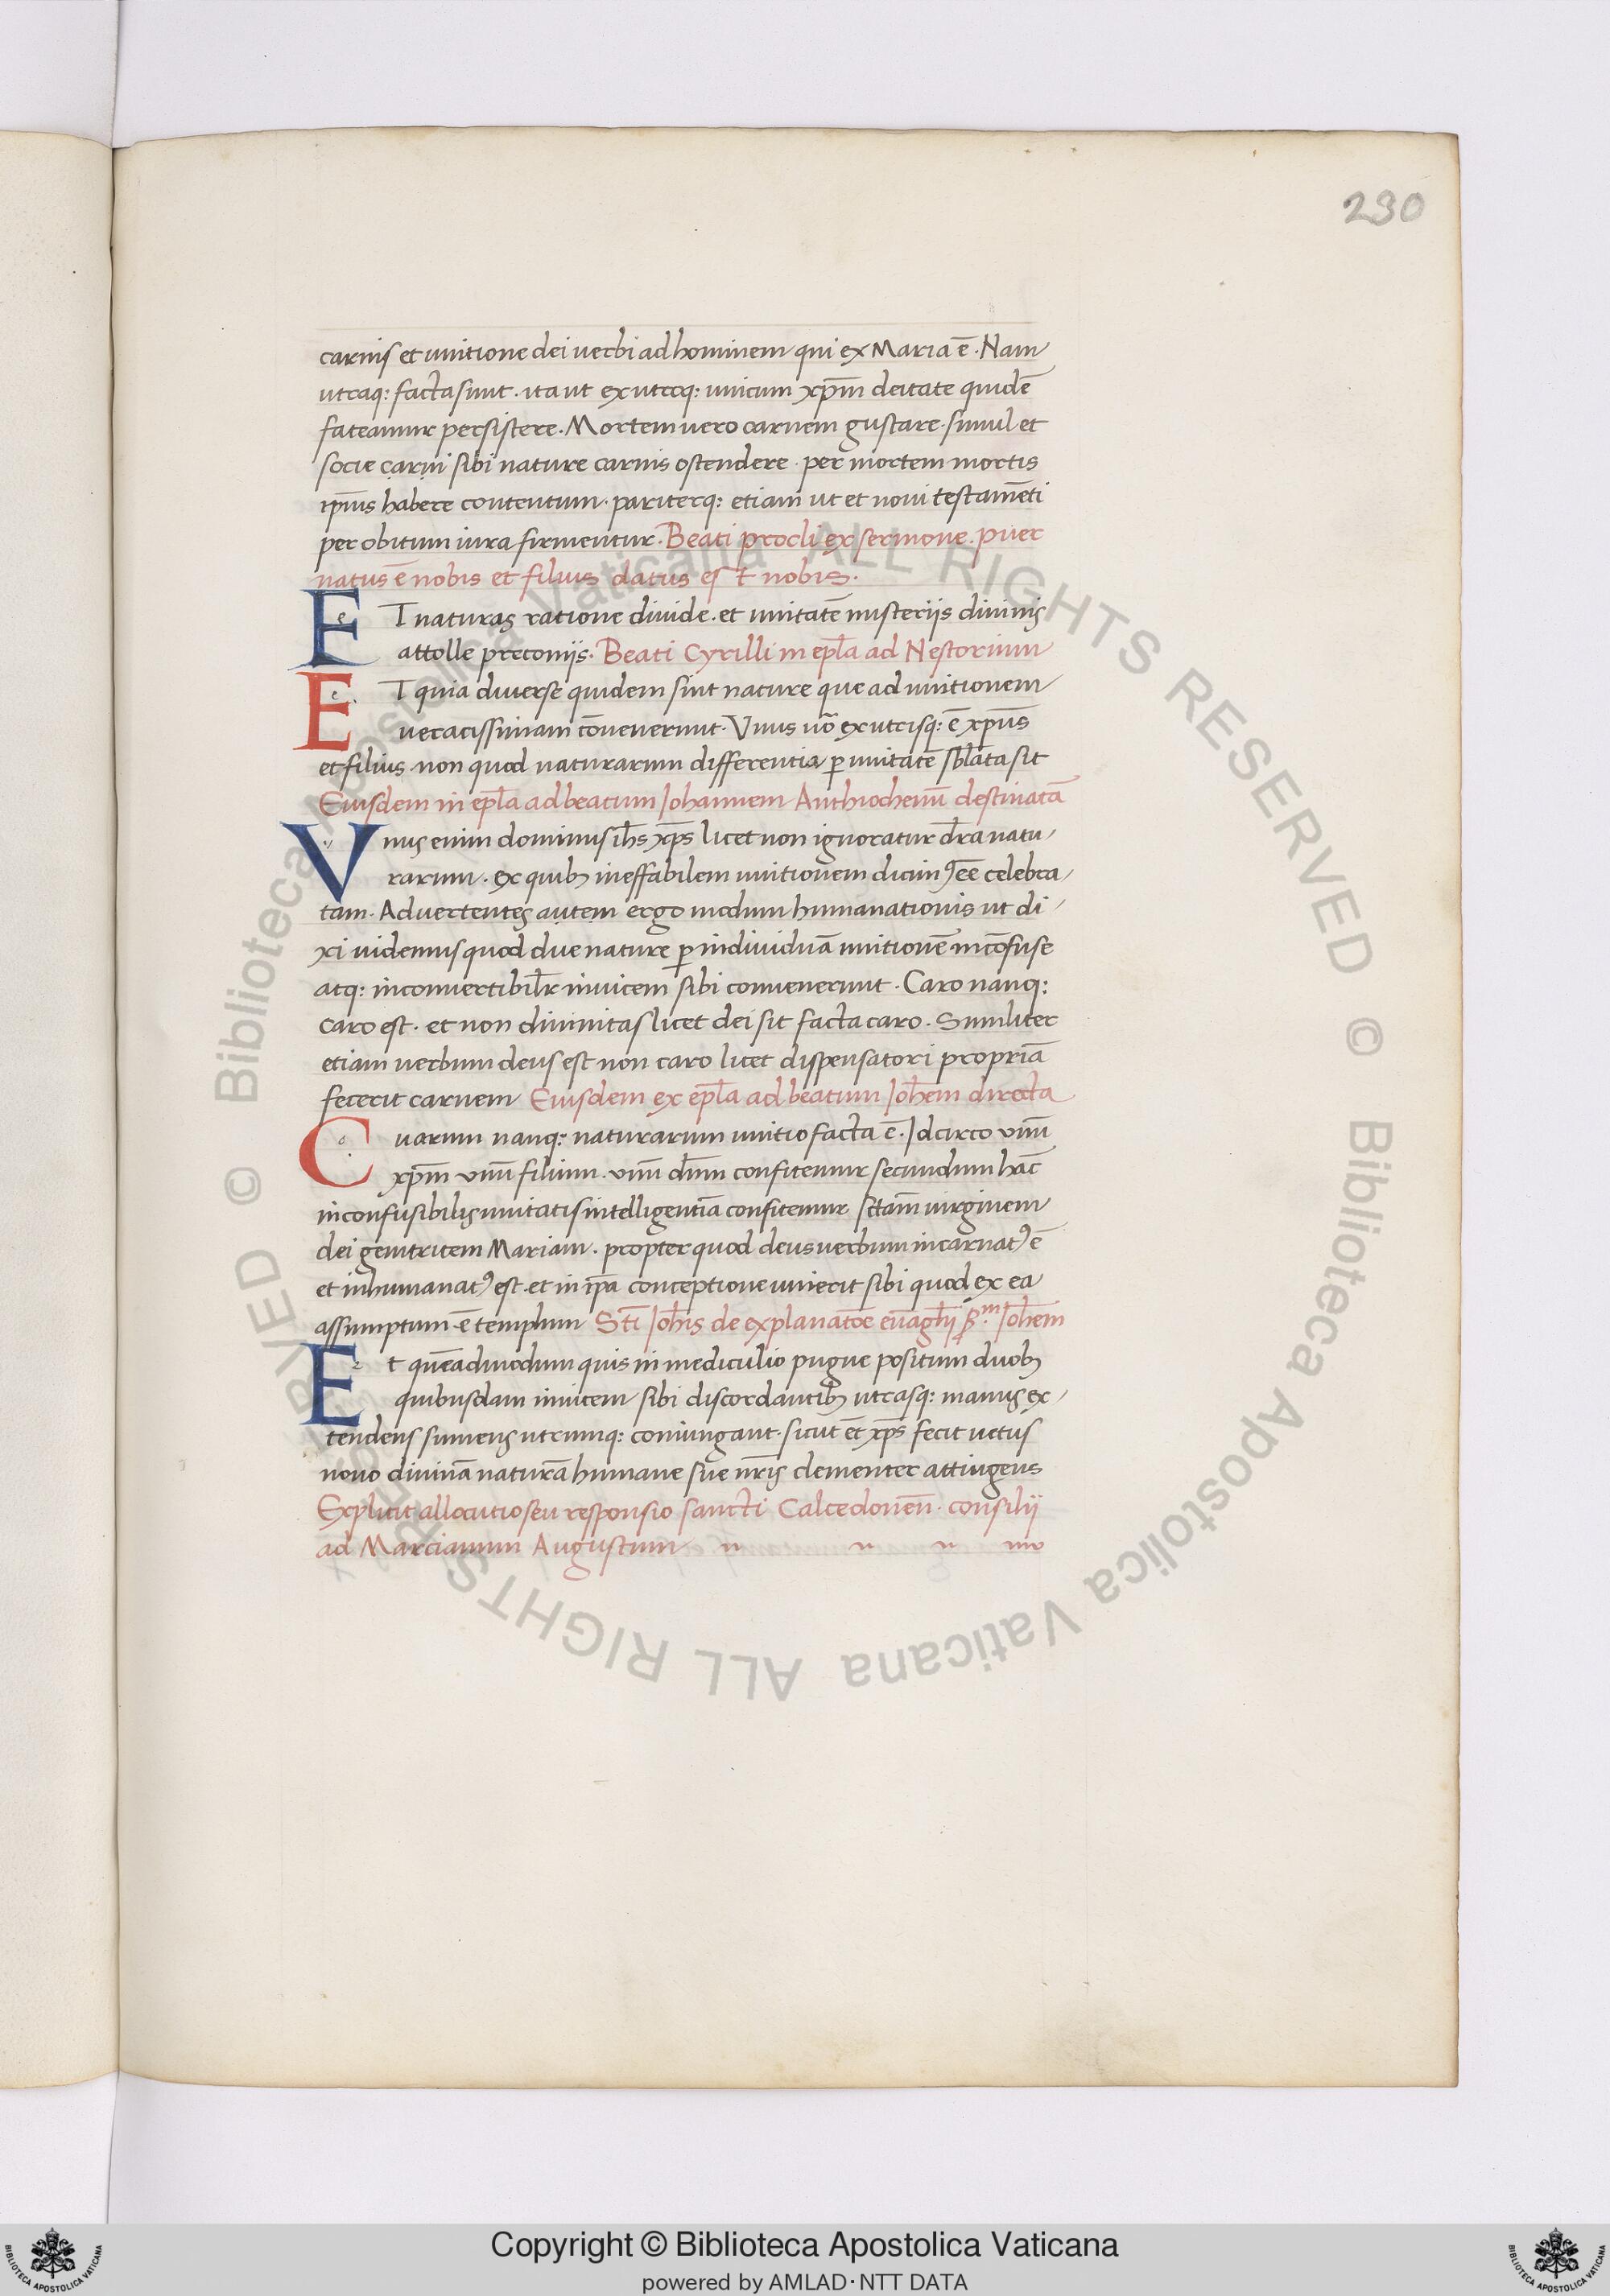 230
carnis et unitione dei uerbi ad hominem qui ex Maria ē. Nam
utraq: facta sunt. ita ut ex utroq: unicum xp̄m deitate quidē
fateamur persistere. Mortem uero carnem gustare. simul et
socie carni sibi nature carnis ostendere. per mortem mortis
ip̄ius habere contentum. pariterq: etiam ut et noui testam̄eti
per obitum iura firmentur. Beati procli ex sermone. puer
natus ē nobis et filius datus est nobis.
E e T naturas ratione diuide. et unitatē misteriis diuinis
attolle preconiis. Beati Cyrilli in epl̄a ad Nestorium
E e T quia diuerse quidem sint nature que ad unitionem
ueracissimam cōuenerunt. Vnus uō ex utrisq: ē xpūs
et filius. non quod naturarum differentia ꝑ unitatē sbl̄ata sit
Eiusdem in epl̄a ad beatum Iohannem Anthiochenū destinatā
V u nus enim dominus ih̄s xp̄s licet non ignoratur dr̄a natu
rarum. ex quibꝫ ineffabilem unitionem dicimꝰ eē celebra
tam. Aduertentes autem ergo modum humanationis ut di
xi uidemus quod due nature ꝑ indiuiduā unitionē incōfuse
atq: inconuertibilr̄ inuicem sibi conuenerunt. Caro nanq:
caro est. et non diuinitas licet dei sit facta caro. Similiter
etiam uerbum deus est non caro licet dispensatori propriā
fecerit carnem Eiusdem ex epl̄a ad beatum Ioh̄em directa
C uarum nanq: naturarum unitio facta ē. Idcirco unū
xp̄m unū filium. unū dn̄m confitemur secundum hāc
inconfusibilis unitatis intelligentiā confitemur sctām uirginem
dei genitricem Mariam. propter quod deus uerbum incarnatꝰ ē
et inhumanatꝰ est. et in ip̄a conceptione unierit sibi quod ex ea
assumptum ē templum Stī Ioh̄is de explanatōe euāgl̄ii Ioh̄em
E e t quēadmodum quis in mediculio pugne positum duobꝫ
quibusdam inuicem sibi discordantibꝫ utrasq: manus ex
tendens sumens utrunq: coniungant. sicut et̄ xp̄s fecit uetus
nouo diuinā naturā humane sue nr̄is clementer attingens
Explicit allocutio seu responsio sancti Calcedonen̄. consilii
ad Marcianum Augustum
Copyright © Biblioteca Apostolica Vaticana
powered by AMLAD·NTT DATA
© Biblioteca Apostolica Vaticana ALL RIGHTS RESERVED © Biblioteca Apostolica Vaticana ALL RIGHTS RESERVED
BIBLIOTECA APOSTOLICA VATICANA
BIBLIOTECA APOSTOLICA VATICANA